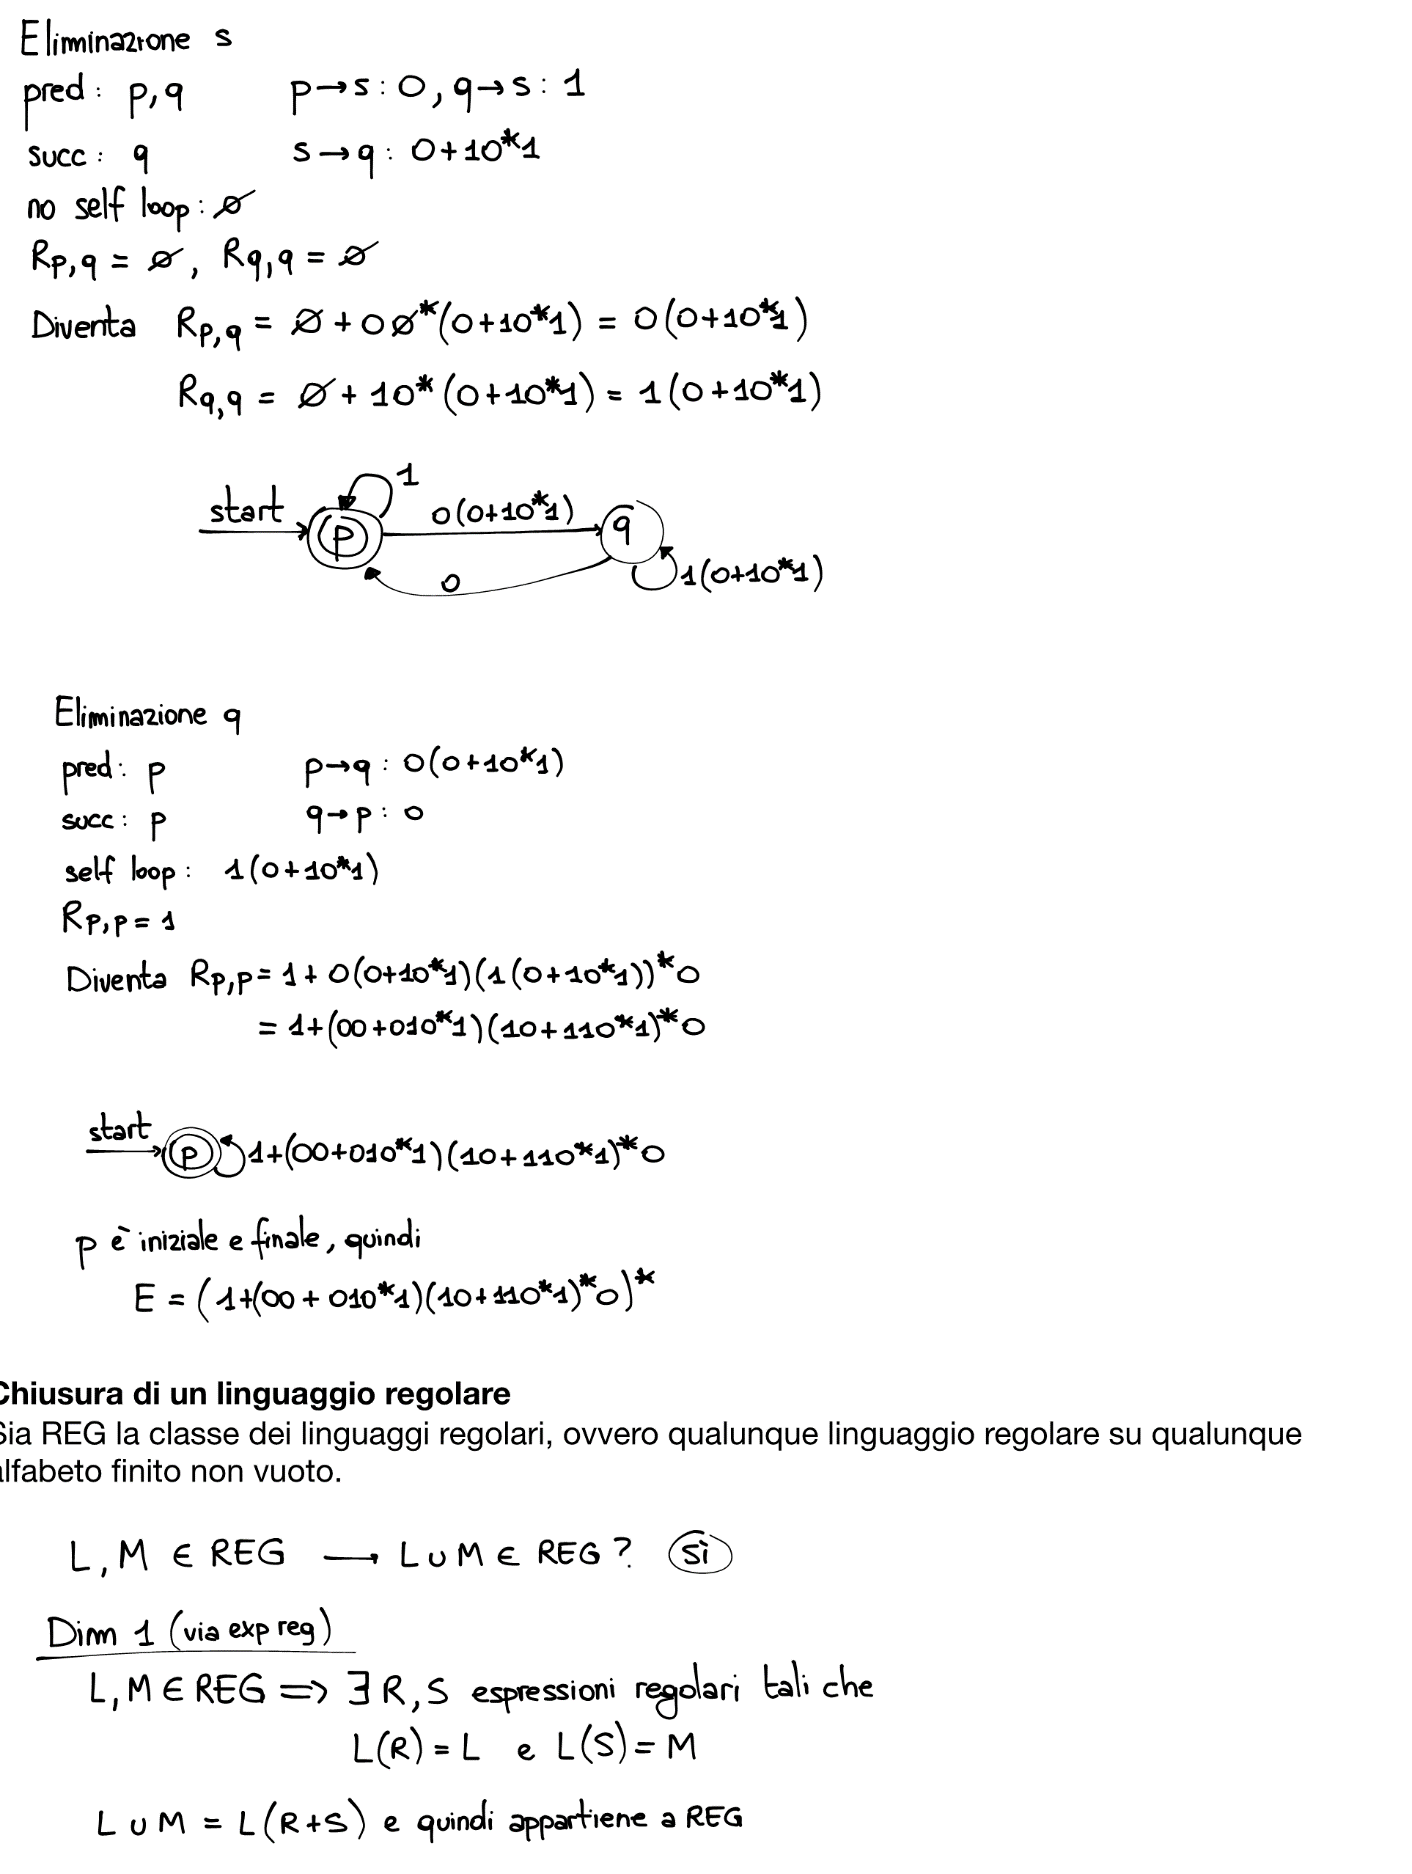 Eliminazione s
pred: p,q p→s: 0, q→s: 1
succ: q s→q: 0+10*1
no self loop: ∅
Rp,q = ∅, Rq,q = ∅
Diventa Rp,q = ∅+0∅*(0+10*1) = 0(0+10*1)
Rq,q = ∅+10*(0+10*1) = 1(0+10*1)
1
start p 0(0+10*1) q
0 1(0+10*1)
Eliminazione q
pred: p p→q: 0(0+10*1)
succ: p q→p: 0
self loop: 1(0+10*1)
Rp,p = 1
Diventa Rp,p = 1+0(0+10*1)(1(0+10*1))*0
= 1+(00+010*1)(10+110*1)*0
start p 1+(00+010*1)(10+110*1)*0
p è iniziale e finale, quindi
E = (1+(00+010*1)(10+110*1)*0)*
Chiusura di un linguaggio regolare
Sia REG la classe dei linguaggi regolari, ovvero qualunque linguaggio regolare su qualunque
alfabeto finito non vuoto.
L,M ∈ REG → L∪M ∈ REG? sì
Dim 1 (via exp reg)
L,M ∈ REG ⇒ ∃ R,S espressioni regolari tali che
L(R) = L e L(S) = M
L∪M = L(R+S) e quindi appartiene a REG